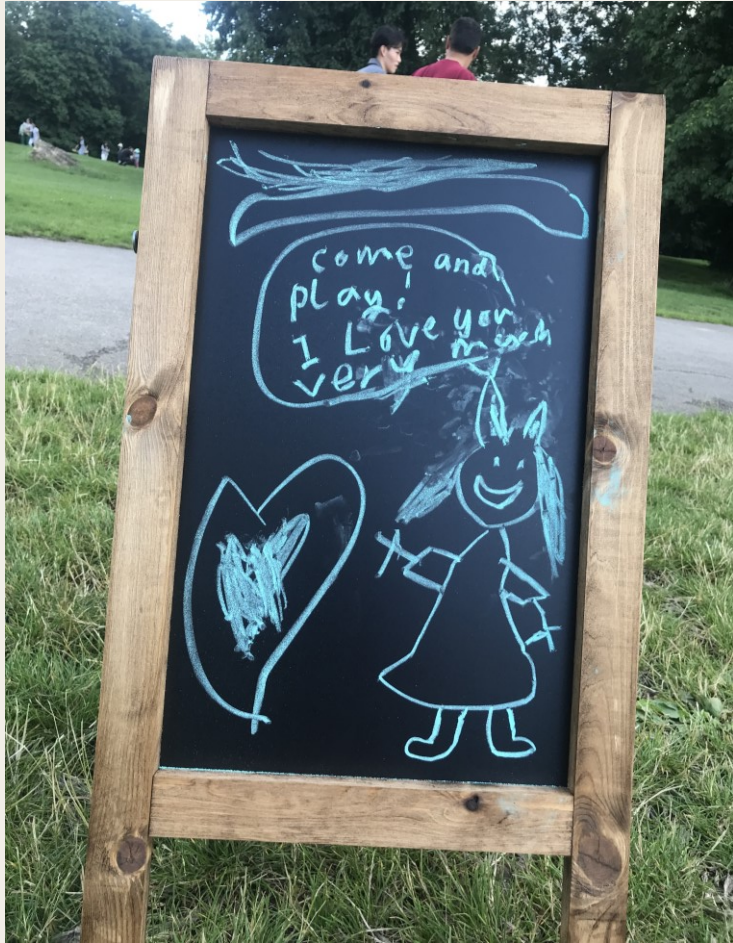 come and
play!
I Love you
very much